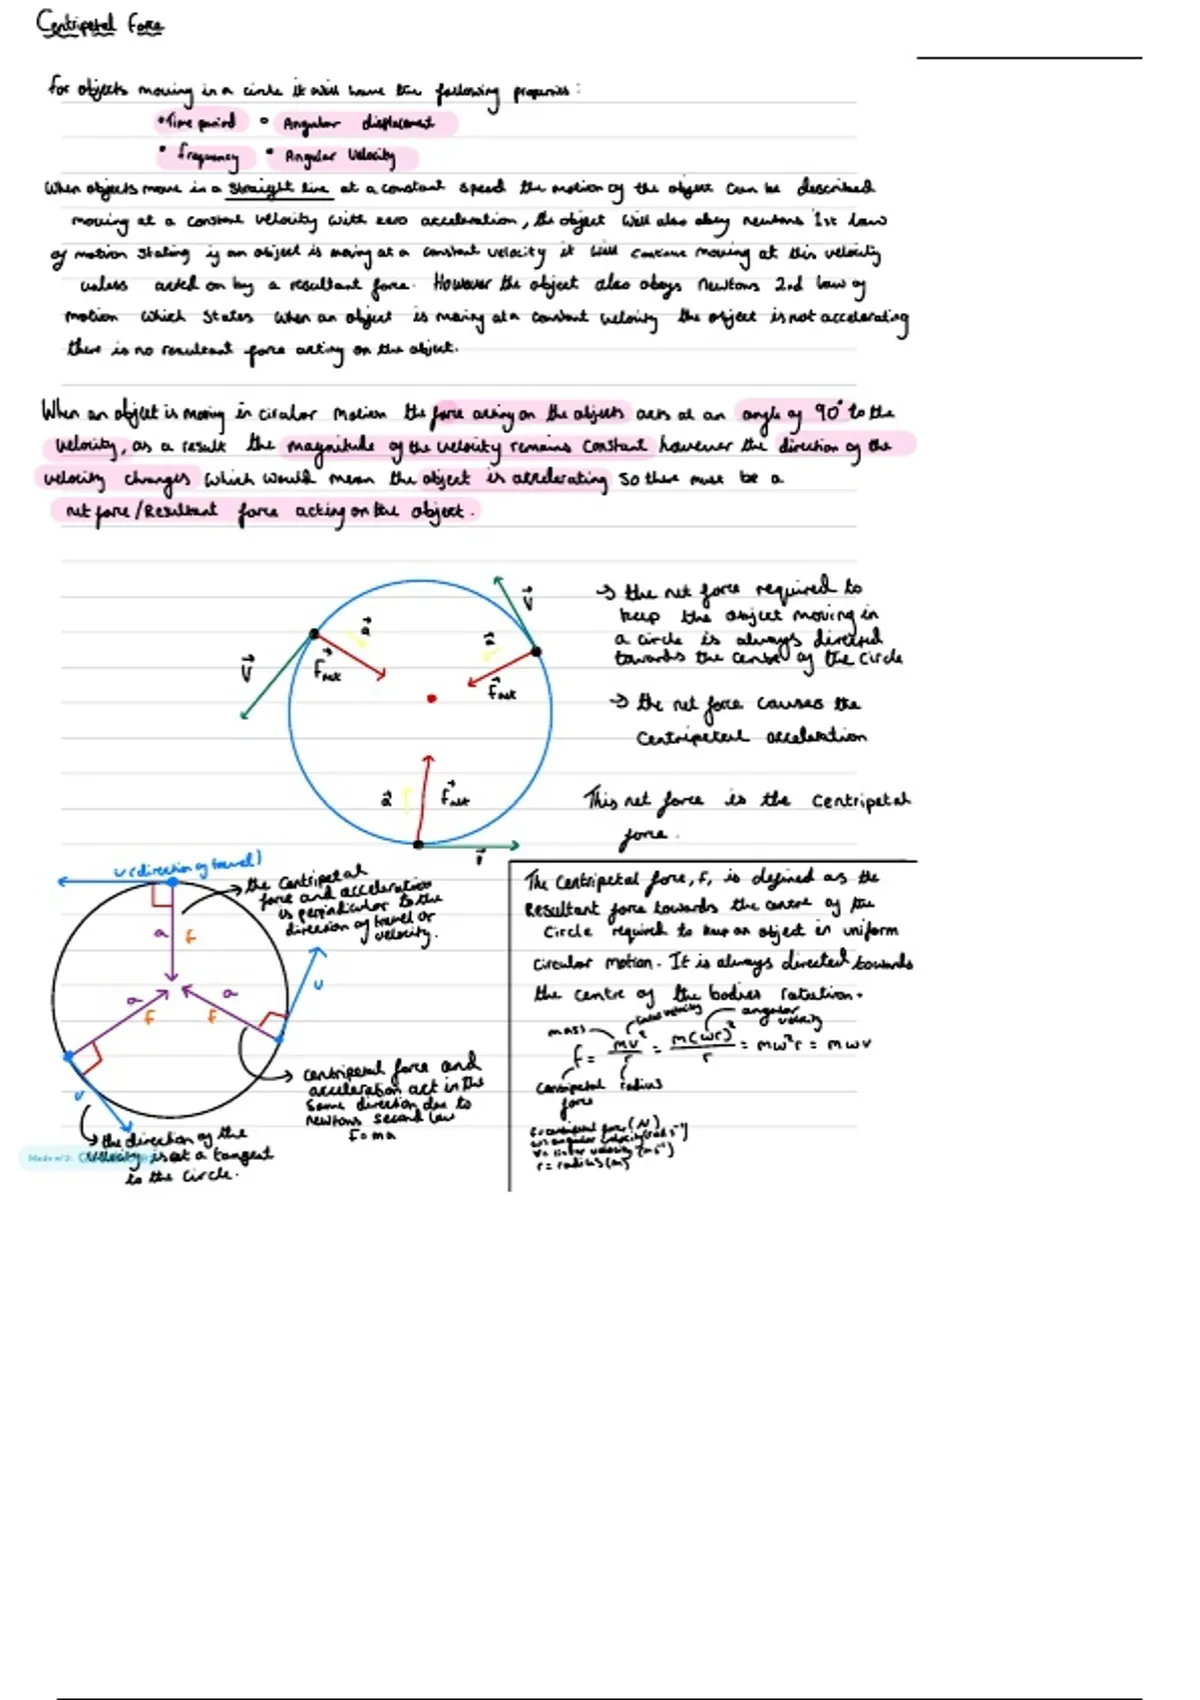 Centripetal Force
for objects moving in a circle it will have the following properties:
• Time period • Angular displacement
• frequency • Angular Velocity
When objects move in a straight line at a constant speed the motion of the object can be described
moving at a constant velocity with zero acceleration, the object will also obey newtons 1st law
of motion stating if an object is moving at a constant velocity it will continue moving at this velocity
unless acted on by a resultant force. However the object also obeys Newtons 2nd law of
motion which states when an object is moving at a constant velocity the object is not accelerating
there is no resultant force acting on the object.
When an object is moving in circular motion the force acting on the objects acts at an angle of 90° to the
velocity, as a result the magnitude of the velocity remains constant however the direction of the
velocity changes which would mean the object is accelerating so there must be a
net force/Resultant force acting on the object.
v⃗
a⃗
F⃗net
a⃗
v⃗
F⃗net
a⃗
F⃗net
v⃗
→ the net force required to
keep the object moving in
a circle is always directed
towards the center of the circle
→ the net force causes the
centripetal acceleration
This net force is the centripetal
force.
v (direction of travel)
→ the centripetal
force and acceleration
is perpindicular to the
direction of travel or
velocity.
a F
a F
a F
v
v
→ centripetal force and
acceleration act in the
same direction due to
newtons second law
F = ma
→ the direction of the
velocity is at a tangent
to the circle.
The centripetal force, F, is defined as the
Resultant force towards the centre of the
circle required to keep an object in uniform
circular motion. It is always directed towards
the centre of the bodies rotation.
mass linear velocity angular velocity
F = mv²/r = m(ωr)²/r = mω²r = mωv
centripetal force radius
F = centripetal force (N)
ω = angular velocity (rad s⁻¹)
v = linear velocity (ms⁻¹)
r = radius (m)